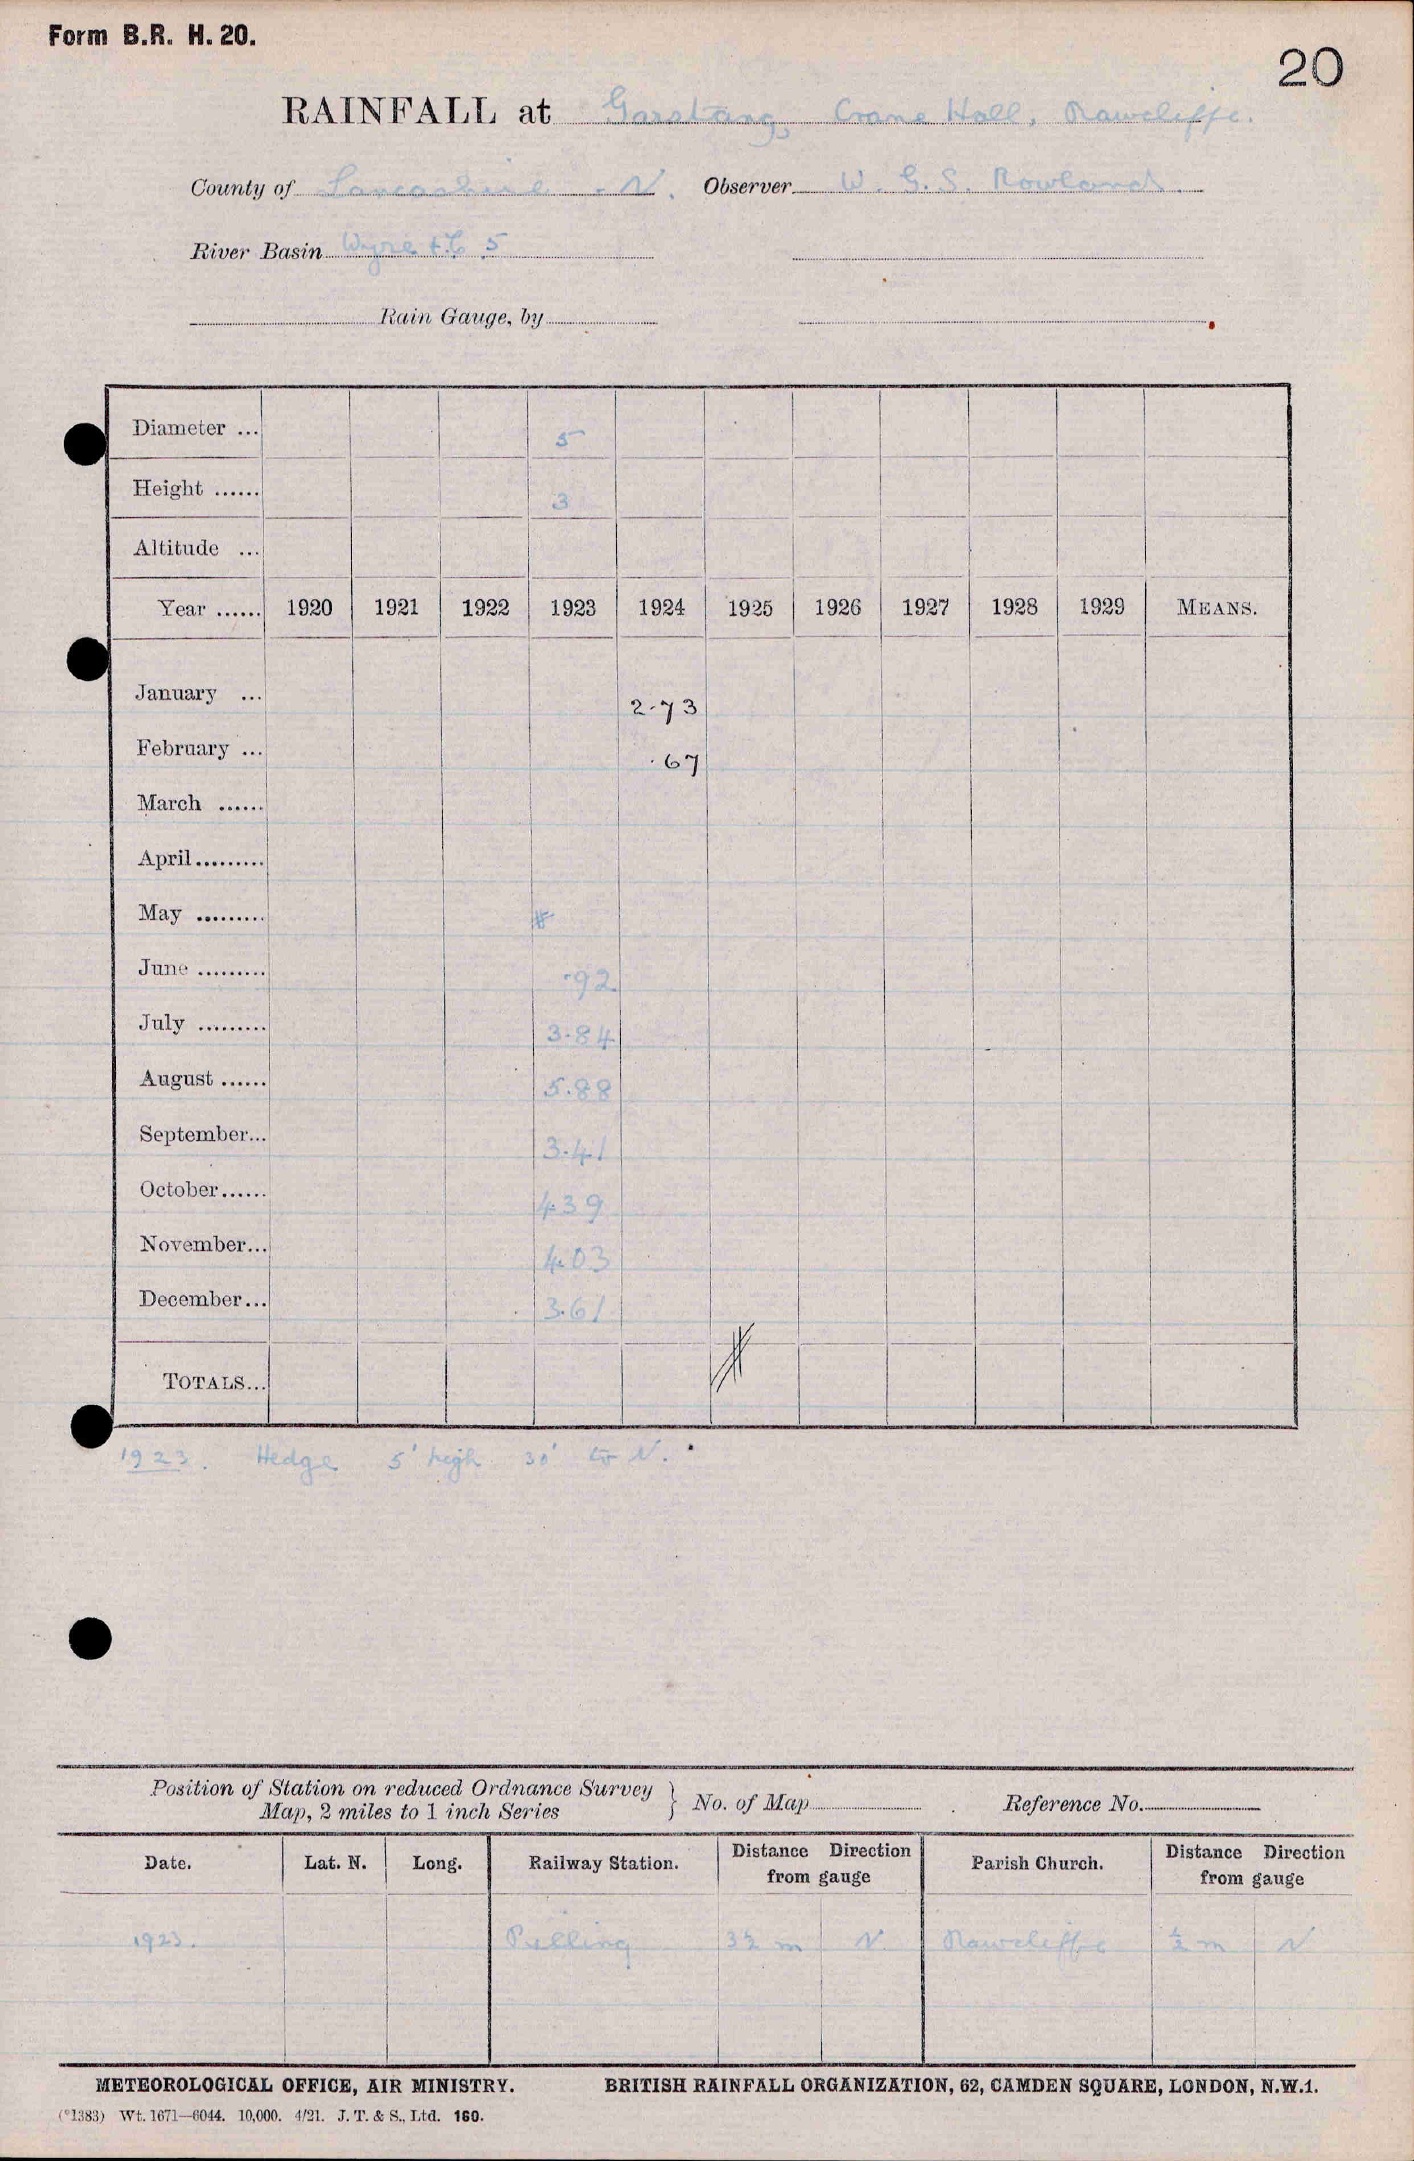 Form B.R. H. 20.
20
RAINFALL at Garstang, Crane Hall, Rawcliffe.
County of Lancashire - N. Observer W. G. S. Rowland.
River Basin Wyre &c 5
Rain Gauge, by
Diameter ... 5
Height ...... 3
Altitude ...
Year ...... 1920 1921 1922 1923 1924 1925 1926 1927 1928 1929 MEANS.
January ... 2.73
February ... .67
March ......
April.........
May .........
June ......... .92
July ......... 3.84
August ...... 5.88
September... 3.41
October...... 4.39
November... 4.03
December... 3.61
TOTALS...
1923. Hedge 5' high 30' to N.
Position of Station on reduced Ordnance Survey
Map, 2 miles to 1 inch Series } No. of Map Reference No.
Date. Lat. N. Long. Railway Station. Distance Direction from gauge Parish Church. Distance Direction from gauge
1923. Pilling 3½ m N. Rawcliffe ½ m N
METEOROLOGICAL OFFICE, AIR MINISTRY. BRITISH RAINFALL ORGANIZATION, 62, CAMDEN SQUARE, LONDON, N.W.1.
(*1383) Wt. 1671—6044. 10,000. 4/21. J. T. & S., Ltd. 160.